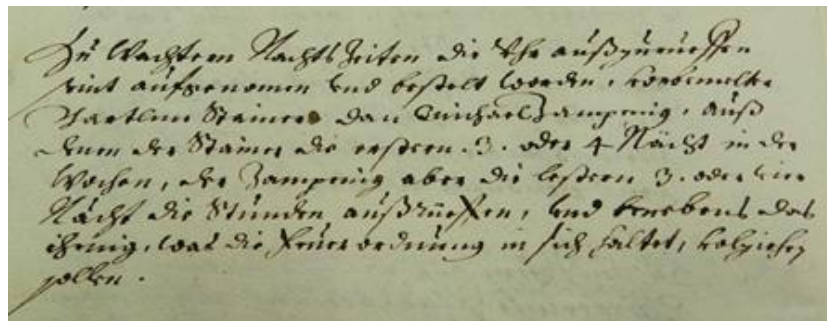 Zu Wachtern Nachts Zeiten die Uhr außzurueffen
sint aufgenomen und bestelt worden,
Bartlme Stainer dan Michael Zampenig, auß
denen der Stainer die erstern .3. oder 4 Nächt in der
Wochen, der Zampenig aber die lestern 3. oder vier
Nächt die Stunden außrueffen, und benebens das
ihenig, was die feuer ordnung in sich haltet, volziehen
sollen.